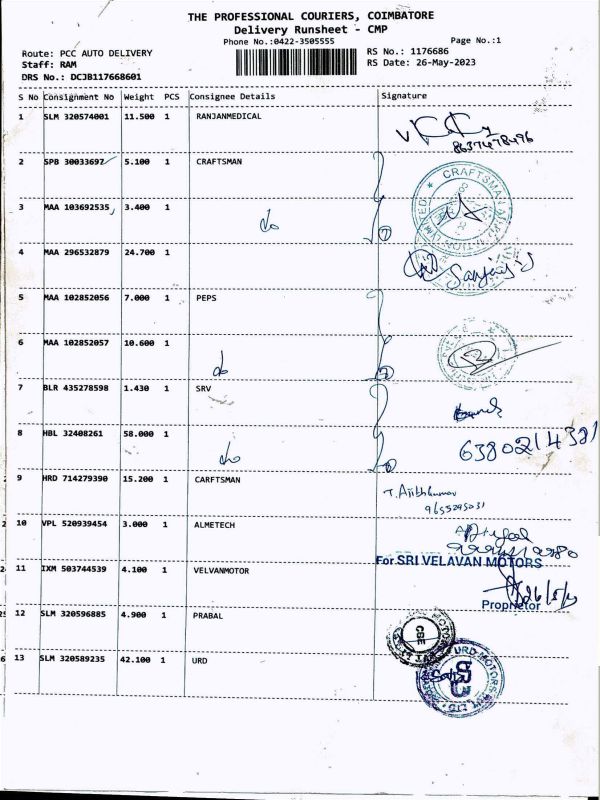 THE PROFESSIONAL COURIERS, COIMBATORE
Delivery Runsheet - CMP
Phone No.:0422-3505555
Page No.:1
Route: PCC AUTO DELIVERY
RS No.: 1176686
Staff: RAM
RS Date: 26-May-2023
DRS No.: DCJB117668601
S No Consignment No Weight PCS Consignee Details Signature
1 SLM 320574001 11.500 1 RANJANMEDICAL
8637478496
2 SPB 30033697 5.100 1 CRAFTSMAN
CRAFTSMAN
3 MAA 103692535 3.400 1 do
4 MAA 296532879 24.700 1
5 MAA 102852056 7.000 1 PEPS
6 MAA 102852057 10.600 1 do
7 BLR 435278598 1.430 1 SRV
8 HBL 32408261 58.000 1 do
6380214381
9 HRD 714279390 15.200 1 CARFTSMAN
10 VPL 520939454 3.000 1 ALMETECH
11 IXM 503744539 4.100 1 VELVANMOTOR
For SRI VELAVAN MOTORS
Proprietor
12 SLM 320596885 4.900 1 PRABAL
CBE
13 SLM 320589235 42.100 1 URD
URD MOTORS